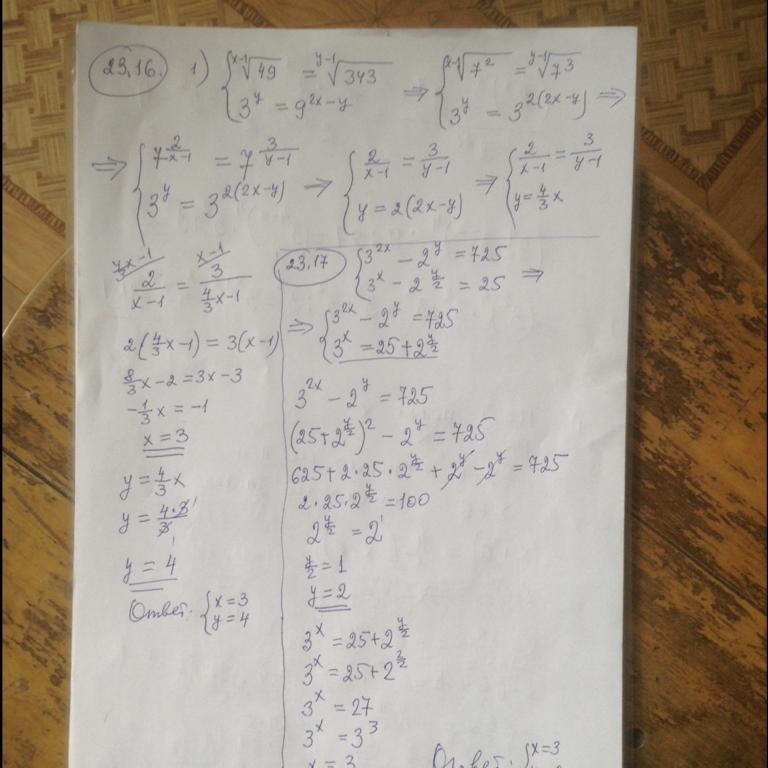 23.16. 1) { ˣ⁻¹√49 = ʸ⁻¹√343 ⇒ { ˣ⁻¹√7² = ʸ⁻¹√7³
{ 3^y = 9^(2x-y) { 3^y = 3^(2(2x-y)) ⇒
⇒ { 7^(2/(x-1)) = 7^(3/(y-1)) ⇒ { 2/(x-1) = 3/(y-1) ⇒ { 2/(x-1) = 3/(y-1)
{ 3^y = 3^(2(2x-y)) { y = 2(2x-y) { y = 4/3 x
2/(x-1) = 3/(4/3 x-1)
2(4/3 x-1) = 3(x-1)
8/3 x-2 = 3x-3
-1/3 x = -1
x = 3
y = 4/3 x
y = 4·3/3
y = 4
Ответ: { x=3
{ y=4
23.17 { 3^(2x) - 2^y = 725
{ 3^x - 2^(y/2) = 25 ⇒
⇒ { 3^(2x) - 2^y = 725
{ 3^x = 25+2^(y/2)
3^(2x) - 2^y = 725
(25+2^(y/2))² - 2^y = 725
625+2·25·2^(y/2) + 2^y - 2^y = 725
2·25·2^(y/2) = 100
2^(y/2) = 2¹
y/2 = 1
y = 2
3^x = 25+2^(y/2)
3^x = 25+2^(2/2)
3^x = 27
3^x = 3³
x = 3
Ответ: { x=3